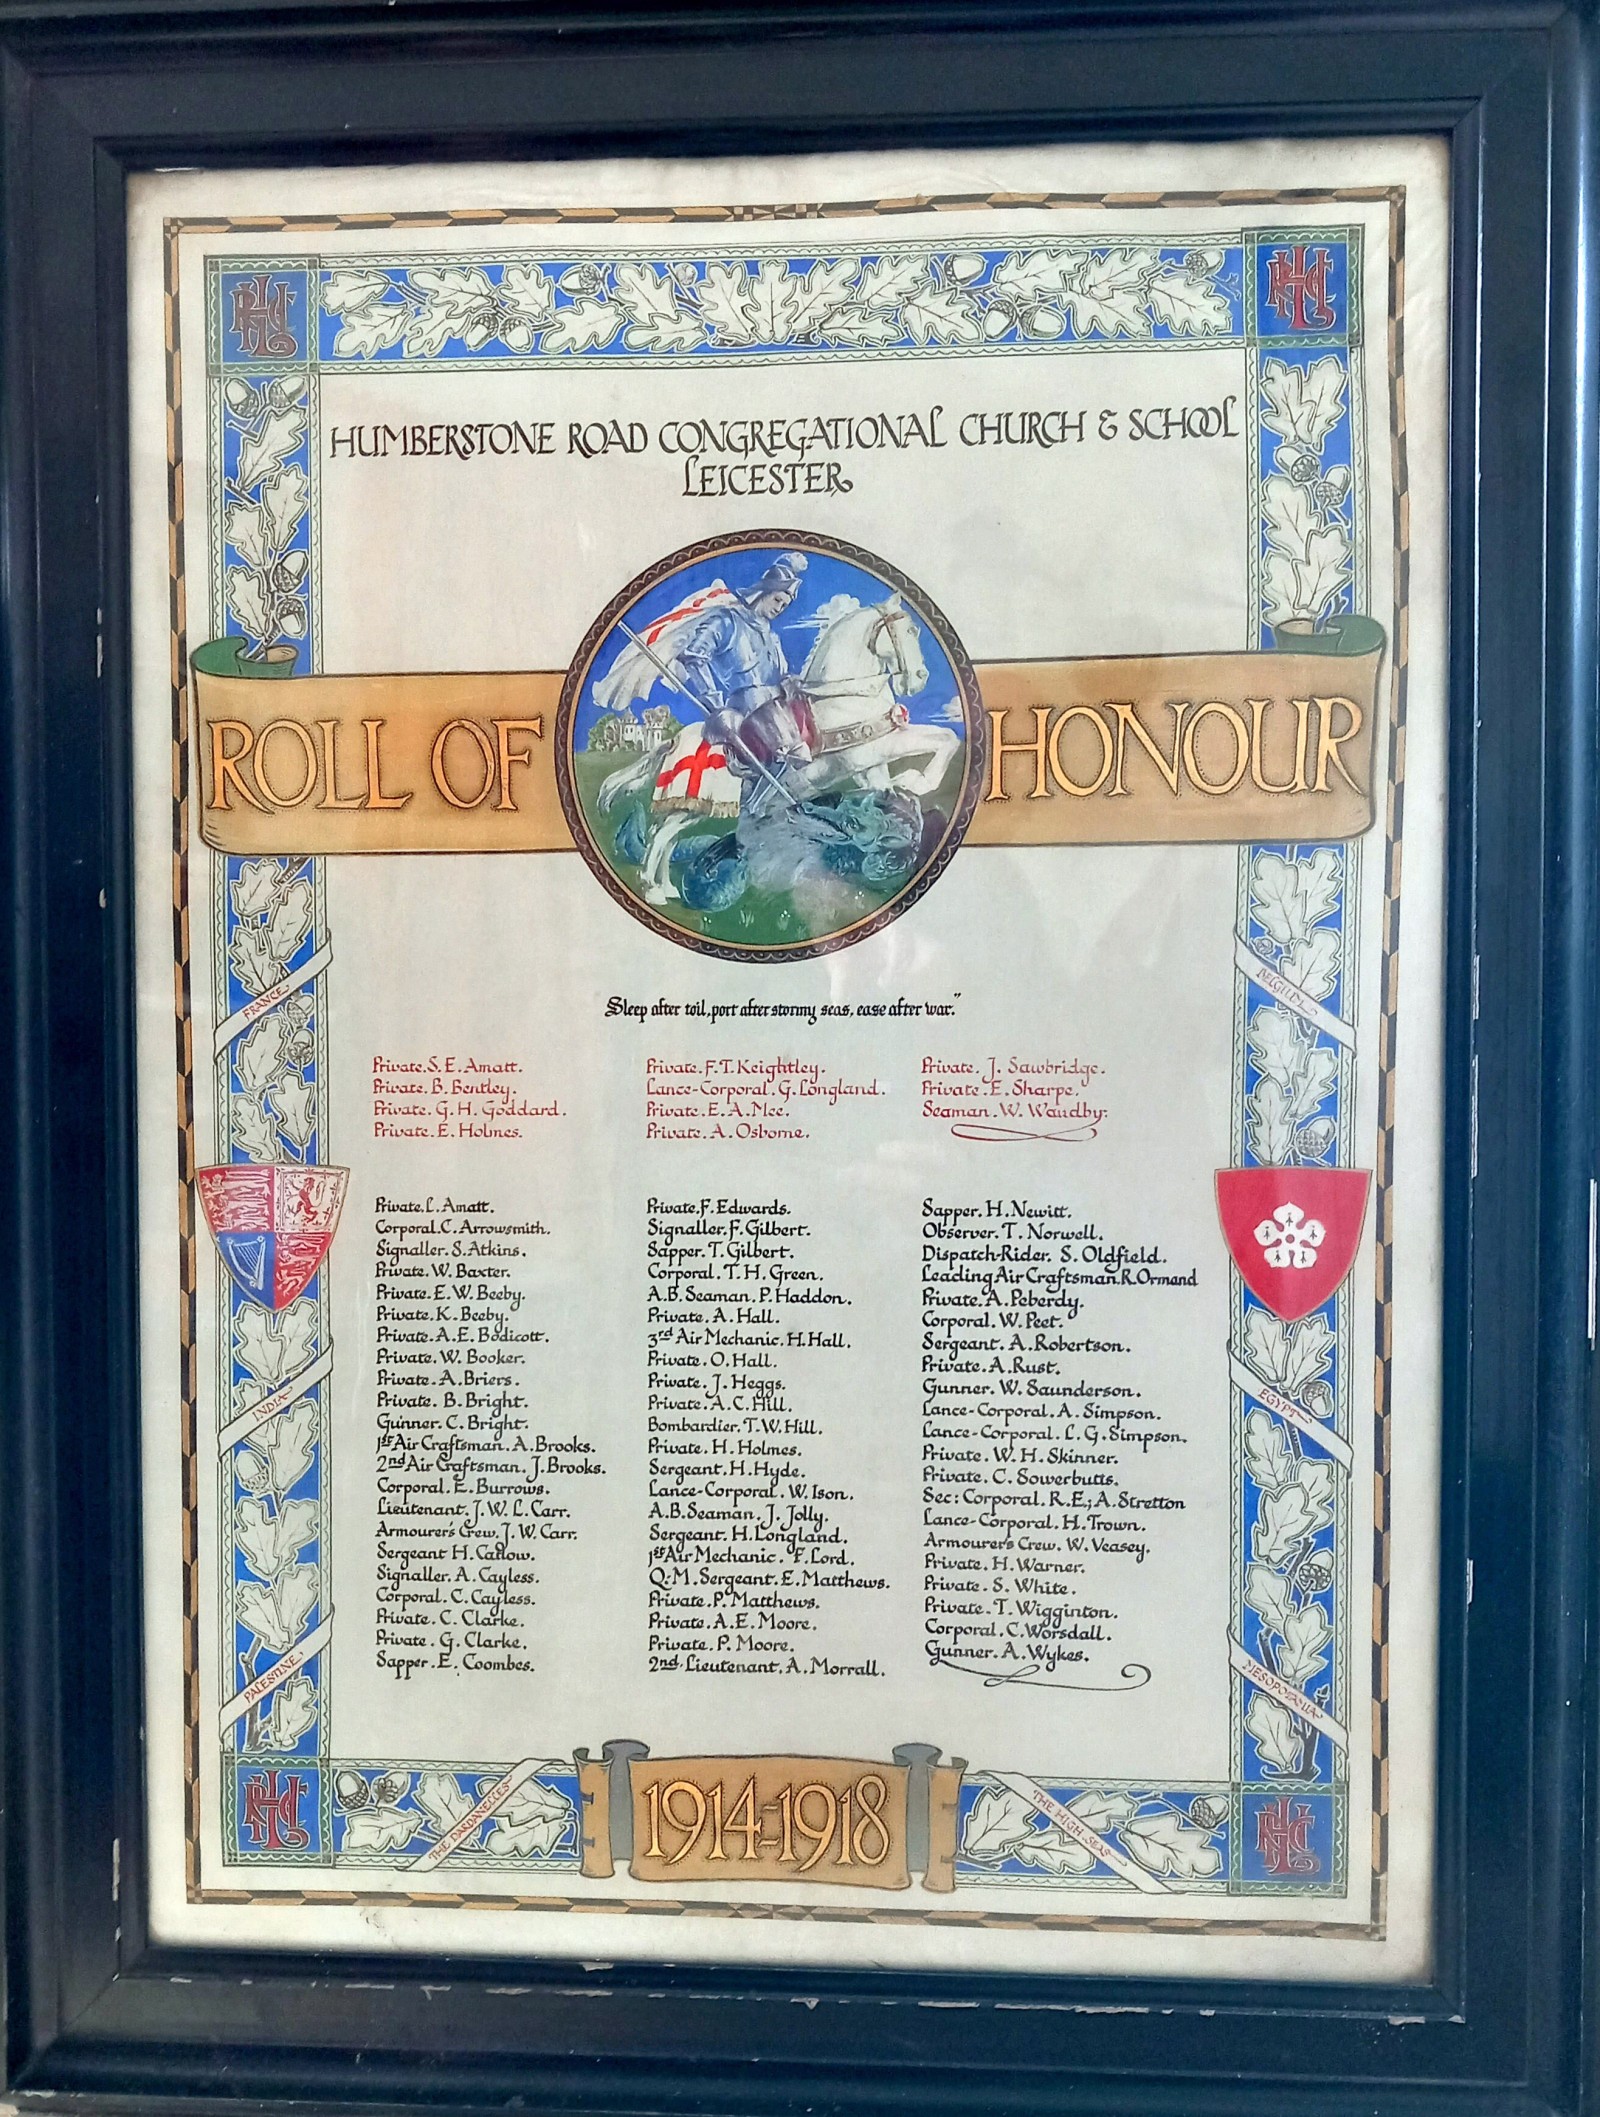 HUMBERSTONE ROAD CONGREGATIONAL CHURCH & SCHOOL
LEICESTER
ROLL OF HONOUR
Sleep after toil, port after stormy seas, ease after war."
Private. S. E. Amatt.
Private. B. Bentley.
Private. G. H. Goddard.
Private. E. Holmes.
Private. F. T. Keightley.
Lance-Corporal. G. Longland.
Private. E. A. Mee.
Private. A. Osborne.
Private. J. Sawbridge.
Private. E. Sharpe.
Seaman. W. Waudby.
Private. L. Amatt.
Corporal. C. Arrowsmith.
Signaller. S. Atkins.
Private. W. Baxter.
Private. E. W. Beeby.
Private. K. Beeby.
Private. A. E. Bodicott.
Private. W. Booker.
Private. A. Briers.
Private. B. Bright.
Gunner. C. Bright.
1st Air Craftsman. A. Brooks.
2nd Air Craftsman. J. Brooks.
Corporal. E. Burrows.
Lieutenant. J. W. L. Carr.
Armourer's Crew. J. W. Carr.
Sergeant H. Catlow.
Signaller. A. Cayless.
Corporal. C. Cayless.
Private. C. Clarke.
Private. G. Clarke.
Sapper. E. Coombes.
Private. F. Edwards.
Signaller. F. Gilbert.
Sapper. T. Gilbert.
Corporal. T. H. Green.
A.B. Seaman. P. Haddon.
Private. A. Hall.
3rd Air Mechanic. H. Hall.
Private. O. Hall.
Private. J. Heggs.
Private. A. C. Hill.
Bombardier. T. W. Hill.
Private. H. Holmes.
Sergeant. H. Hyde.
Lance-Corporal. W. Ison.
A.B. Seaman. J. Jolly.
Sergeant. H. Longland.
1st Air Mechanic. F. Lord.
Q.M. Sergeant. E. Matthews.
Private. P. Matthews.
Private. A. E. Moore.
Private. P. Moore.
2nd Lieutenant. A. Morrall.
Sapper. H. Newitt.
Observer. T. Norwell.
Dispatch-Rider. S. Oldfield.
Leading Air Craftsman. R. Ormand
Private. A. Peberdy.
Corporal. W. Peet.
Sergeant. A. Robertson.
Private. A. Rust.
Gunner. W. Saunderson.
Lance-Corporal. A. Simpson.
Lance-Corporal. L. G. Simpson.
Private. W. H. Skinner.
Private. C. Sowerbutts.
Sec: Corporal. R.E.; A. Stretton
Lance-Corporal. H. Trown.
Armourer's Crew. W. Veasey.
Private. H. Warner.
Private. S. White.
Private. T. Wigginton.
Corporal. C. Worsdall.
Gunner. A. Wykes.
FRANCE
BELGIUM
INDIA
EGYPT
PALESTINE
MESOPOTAMIA
THE DARDANELLES
1914-1918
THE HIGH SEAS